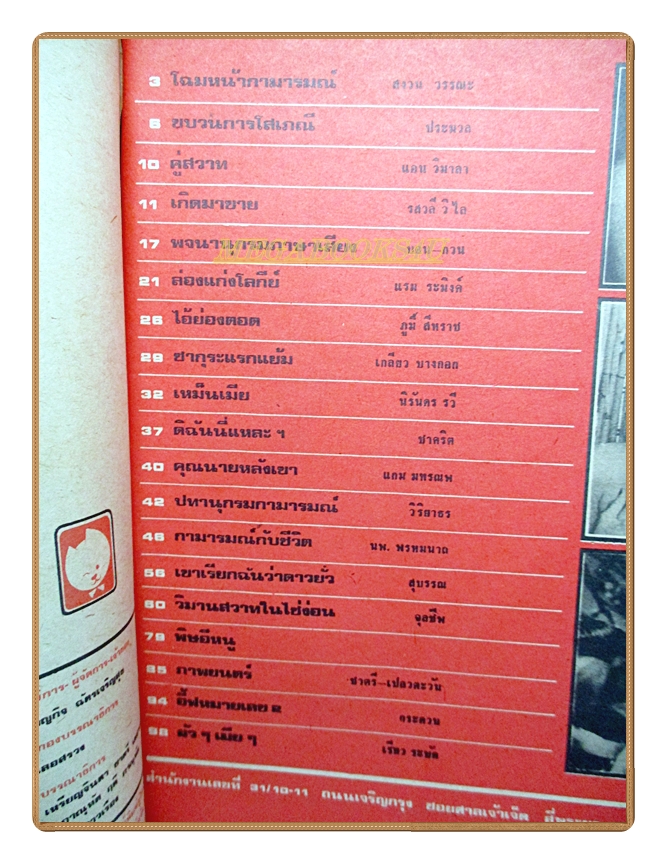 3 โฉมหน้ากามารมณ์ สงวน วรรณะ
6 ขบวนการโสเภณี ประมวล
10 คู่สวาท แอน วิมาลา
11 เกิดมาขาย รสวลี วิไล
17 พจนานุกรมภาษาเสียง
21 ล่องแก่งโลกีย์ แรม ระมิงค์
26 ไอ้ย่องตอด ภูมิ์ สีหราช
29 ซากุระแรกแย้ม เกลียว บางกอก
32 เหม็นเมีย นิรันดร รวี
37 ดิฉันนี่แหละ ฯ ชาคริต
40 คุณนายหลังเขา แถม มหรณพ
42 ปทานุกรมกามารมณ์ วิริยาธร
46 กามารมณ์กับชีวิต นพ. พรหมนาถ
56 เขาเรียกฉันว่าดาวยั่ว สุบรรณ
60 วิมานสวาทในไซ่ง่อน จุลชีพ
79 พิษอีหนู
85 ภาพยนตร์ ชาตรี–เปลวตะวัน
94 อี๊ฟหมายเลข ๒ กระดวน
98 ผัว ๆ เมีย ๆ เรียว ระบัด
สำนักงานเลขที่ 31/10-11 ถนนเจริญกรุง ซอยศาลเจ้าเจ็ด